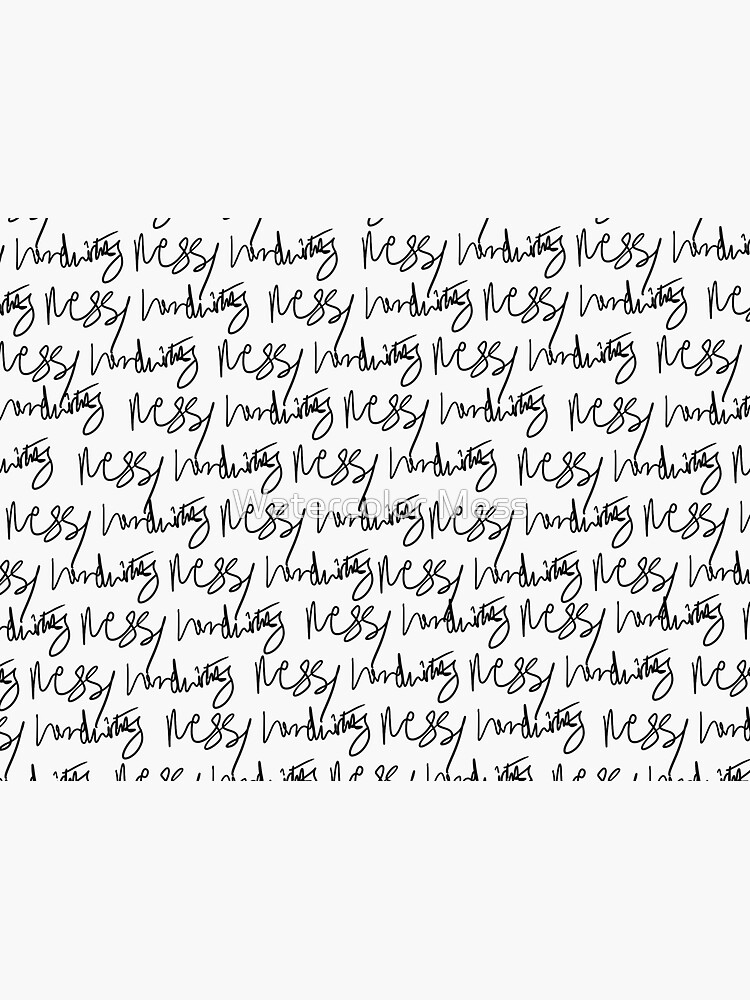 handwriting messy handwriting messy handwriting messy
messy handwriting messy handwriting messy handwriting
messy handwriting messy handwriting messy handwriting messy
handwriting messy handwriting messy handwriting messy handwriting
messy handwriting messy handwriting messy handwriting
Watercolor Mess
messy handwriting messy handwriting messy handwriting messy
handwriting messy handwriting messy handwriting messy
messy handwriting messy handwriting messy handwriting
messy handwriting messy handwriting messy handwriting messy
handwriting messy handwriting messy handwriting messy